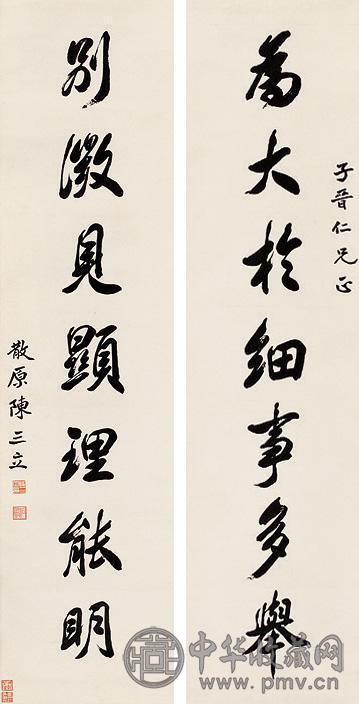 子晉仁兄正
為大於細事多舉
別微見顯理能明
散原陳三立
中华收藏网
www.pmv.cn